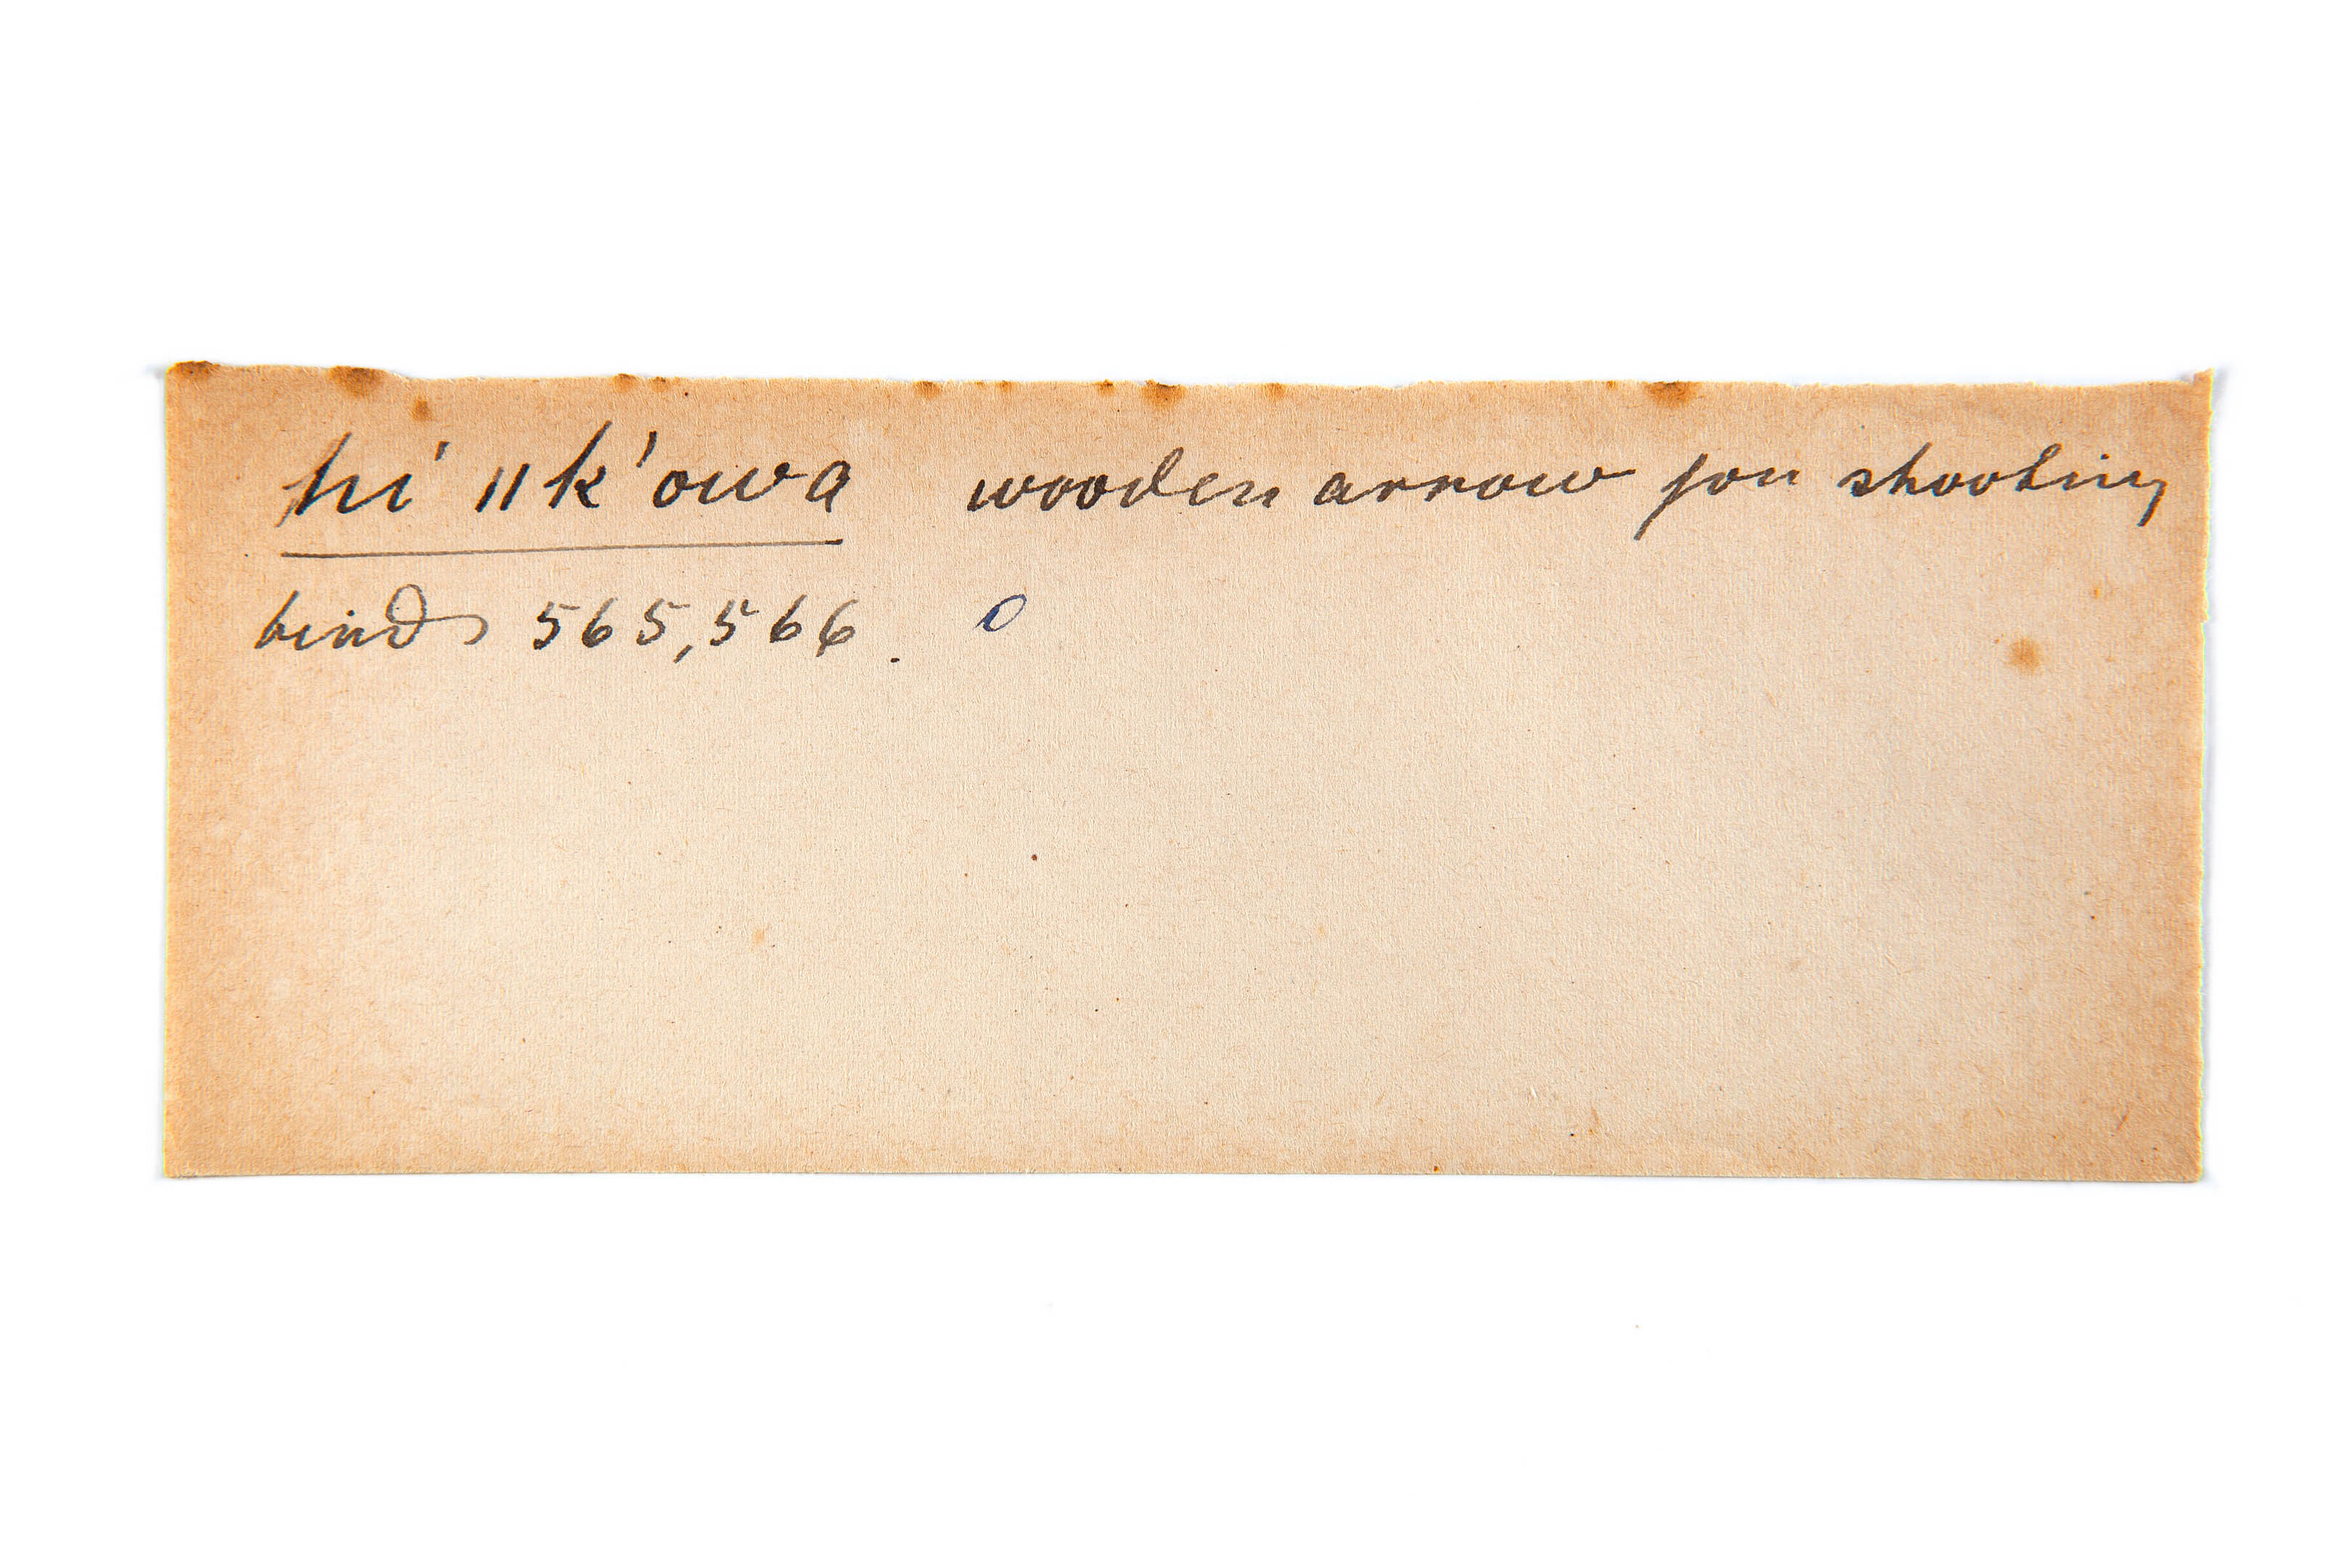 hi' 11k'owa wooden arrow for shooting
birds 565,566. 0